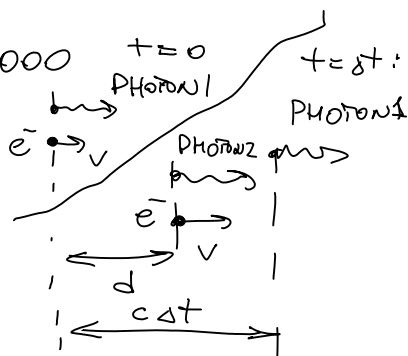 000
t=0
PHOTON1
e⁻
v
t=δt:
PHOTON1
PHOTON2
e⁻
v
d
cΔt